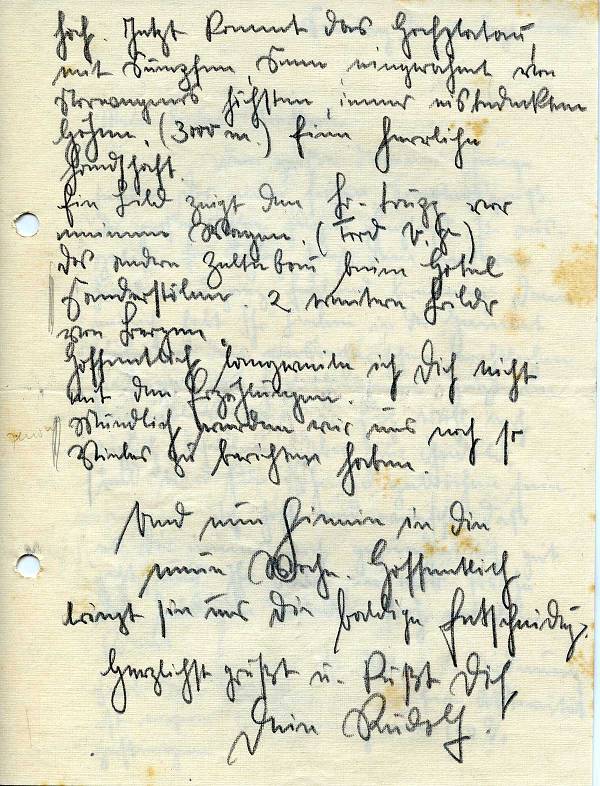 hoch. Jetzt kommt das Hochplateau,
mit Sümpfen, Seen, eingerahmt von
Norwegens höchsten, immer eisbedeckten
Höhen. (3000 m.) Eine herrliche
Landschaft.
Ein Bild zeigt den trupp vor
meinem Wagen. (Ford V.8)
Das andere Zeltebau beim Hotel
2 weitere Bilder
von Bergen.
Hoffentlich langweile ich Dich nicht
mit den Erzählungen.
Mündlich werden wir uns noch so
Vieles zu berichten haben.
Und nun hinein in die
neue Woche. Hoffentlich
bringt sie uns die baldige Entscheidung.
Herzlichst grüßt u. küßt Dich
Dein Rudolf.